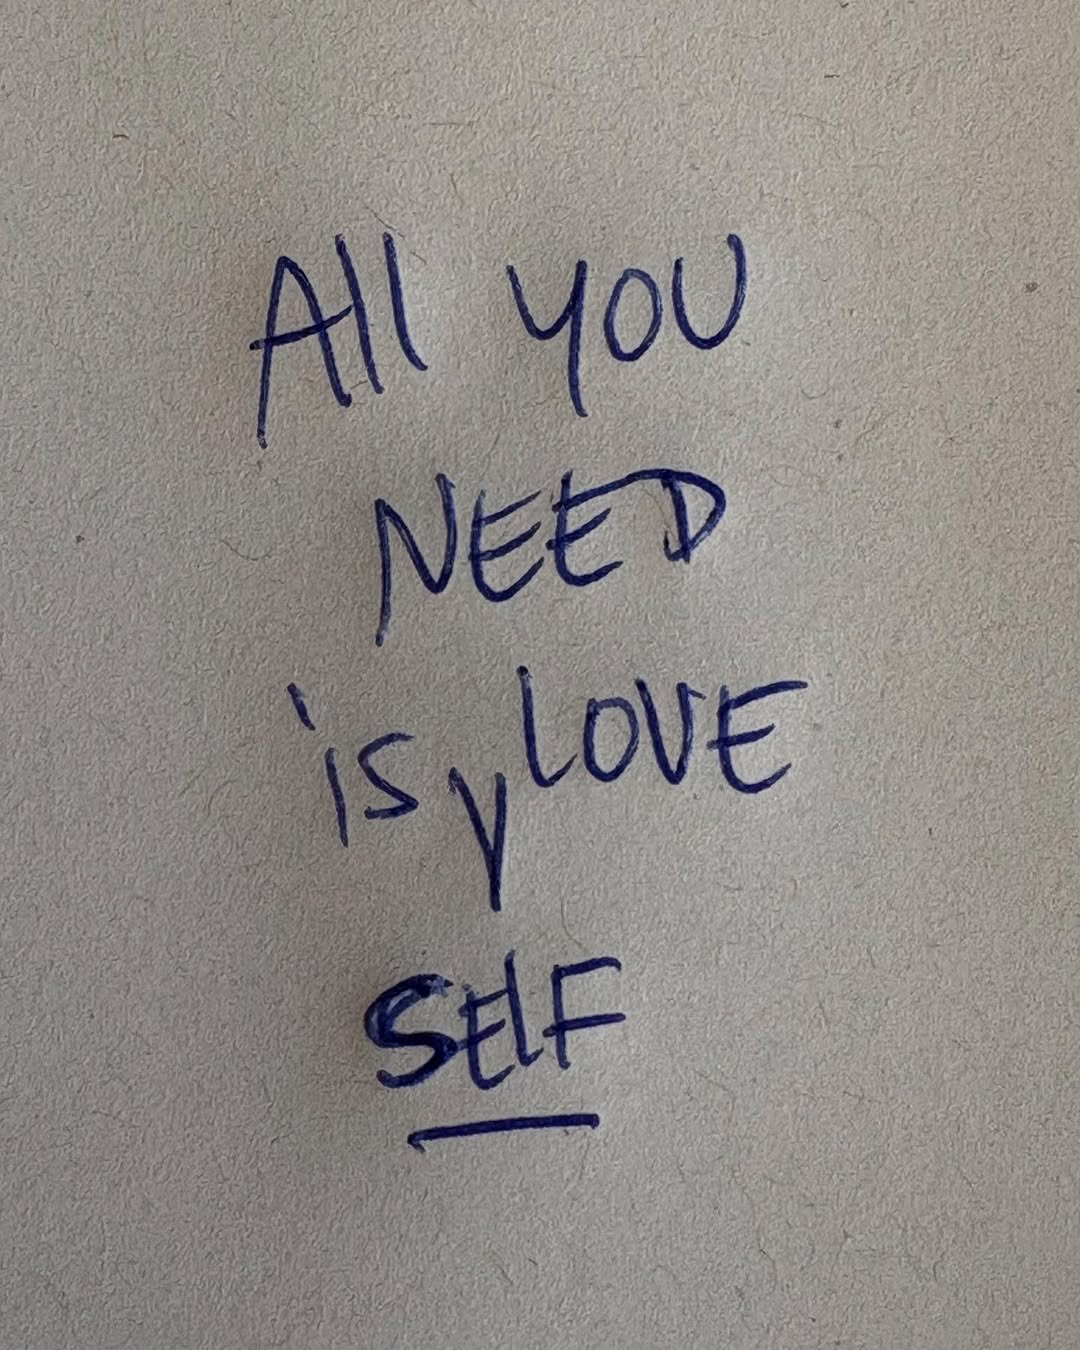 All YOU
NEED
is LOVE
SElF